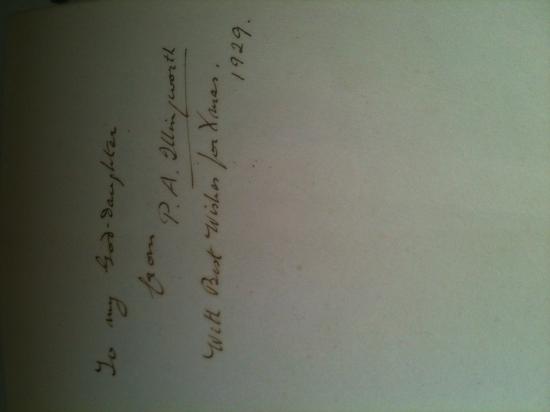 To my God-daughter
from
P. A. Illingworth
With Best Wishes for Xmas.
1929.